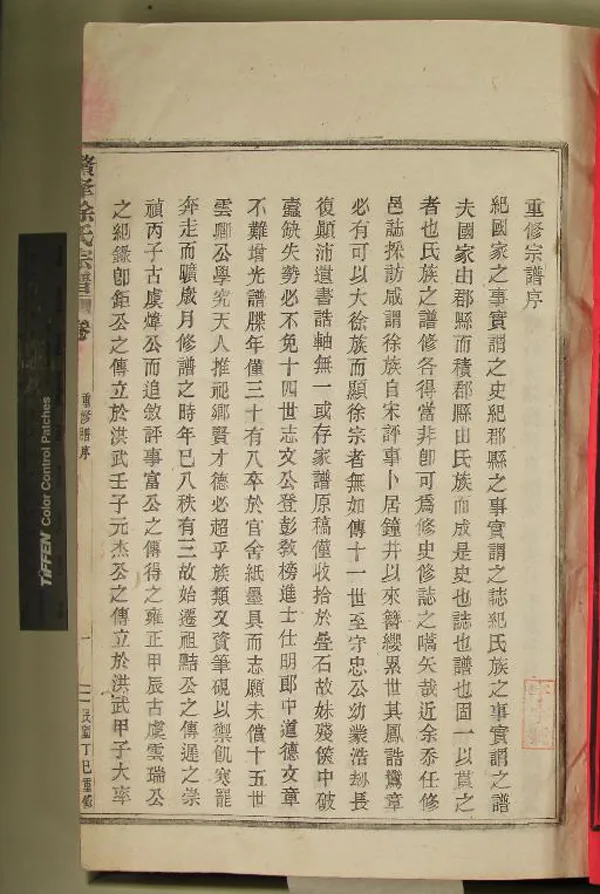 重修宗譜序
紀國家之事實謂之史紀郡縣之事實謂之誌紀氏族之事實謂之譜
夫國家由郡縣而積郡縣由氏族而成是史也誌也譜也固一以貫之
者也氏族之譜修各得當非卽可爲修史修誌之嚆矢哉近余忝任修
邑誌採訪咸謂徐族自宋評事卜居鐘井以來簪纓累世其鳳誥鸞章
必有可以大徐族而顯徐宗者無如傳十一世至守忠公幼業浩劫長
復顛沛遺書誥軸無一或存家譜原稿僅收拾於疊石故妹殘篋中破
蠹缺失勢必不免十四世志文公登彭敎榜進士仕明郎中道德文章
不難增光譜牒年僅三十有八卒於官舍紙墨具而志願未償十五世
雲卿公學究天人推祀鄉賢才德必超乎族類文資筆硯以禦飢寒罷
奔走而曠歲月修譜之時年已八秩有三故始遷祖黠公之傳遲之崇
禎丙子古虞煒公而追敘評事富公之傳得之雍正甲辰古虞雲瑞公
之紀錄卽鉅公之傳立於洪武壬子元杰公之傳立於洪武甲子大率
徐氏宗譜
卷
重修譜序
一
民國丁巳重修
TIFFEN Color Control Patches